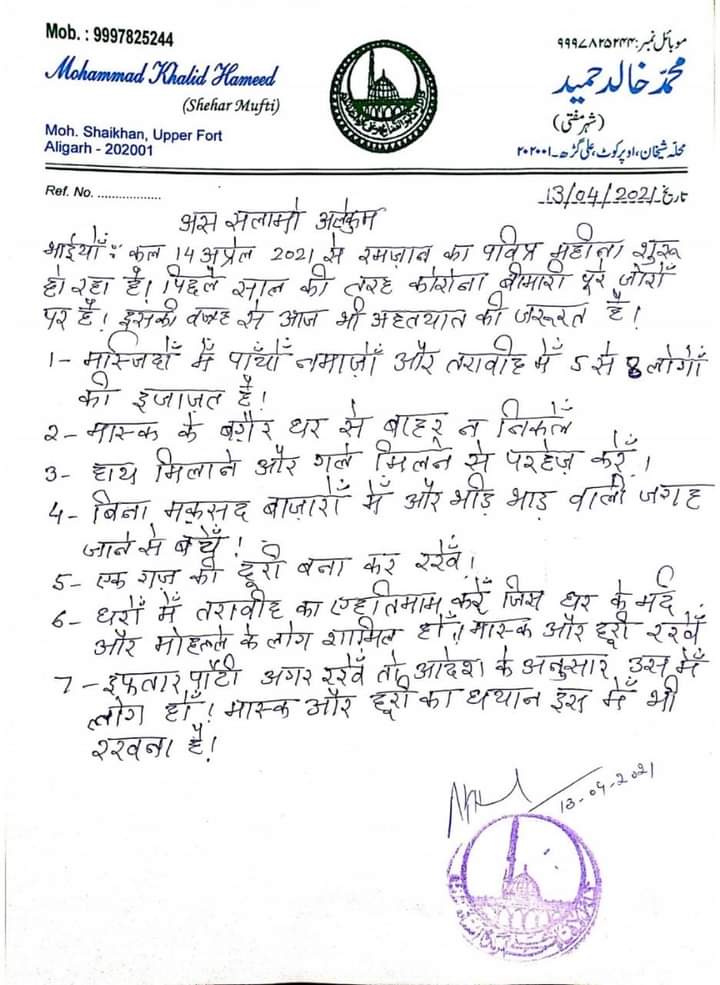 Mob. : 9997825244
Mohammad Khalid Hameed
(Shehar Mufti)
Moh. Shaikhan, Upper Fort
Aligarh - 202001
موبائل نمبر: ۹۹۹۷۸۲۵۲۴۴
محمد خالد حمید
(شہر مفتی)
محلہ شیخان، اوپر کوٹ، علی گڑھ۔ ۲۰۲۰۰۱
Ref. No. ..................
تاریخ 13/04/2021
अस सलामो अलेकुम
भाईयोँ : कल 14 अप्रेल 2021 से रमज़ान का पवित्र महीना शुरू
हो रहा है। पिछले साल की तरह कोरोना बीमारी पूरे ज़ोरोँ
पर है! इसकी वजह से आज भी अहतयात की जरूरत है!
1- मस्जिदोँ मेँ पाँचोँ नमाज़ोँ और तरावीह मेँ 5 से 8 लोगोँ
की इजाजत है!
2- मास्क के बग़ैर घर से बाहर न निकलेँ
3- हाथ मिलाने और गले मिलने से परहेज़ करेँ।
4- बिना मक़सद बाज़ारोँ मेँ और भीड़ भाड़ वाली जगह
जाने से बचेँ!
5- एक गज़ की दूरी बना कर रखेँ।
6- घरोँ मेँ तरावीह का एहतिमाम करेँ जिस घर के मर्द
और मोहल्ले के लोग शामिल होँ! मास्क और दूरी रखेँ
7- इफतार पार्टी अगर रखेँ तो आदेश के अनुसार उस मेँ
लोग होँ! मास्क और दूरी का ध्यान इस मेँ भी
रखना है!
13-04-2021